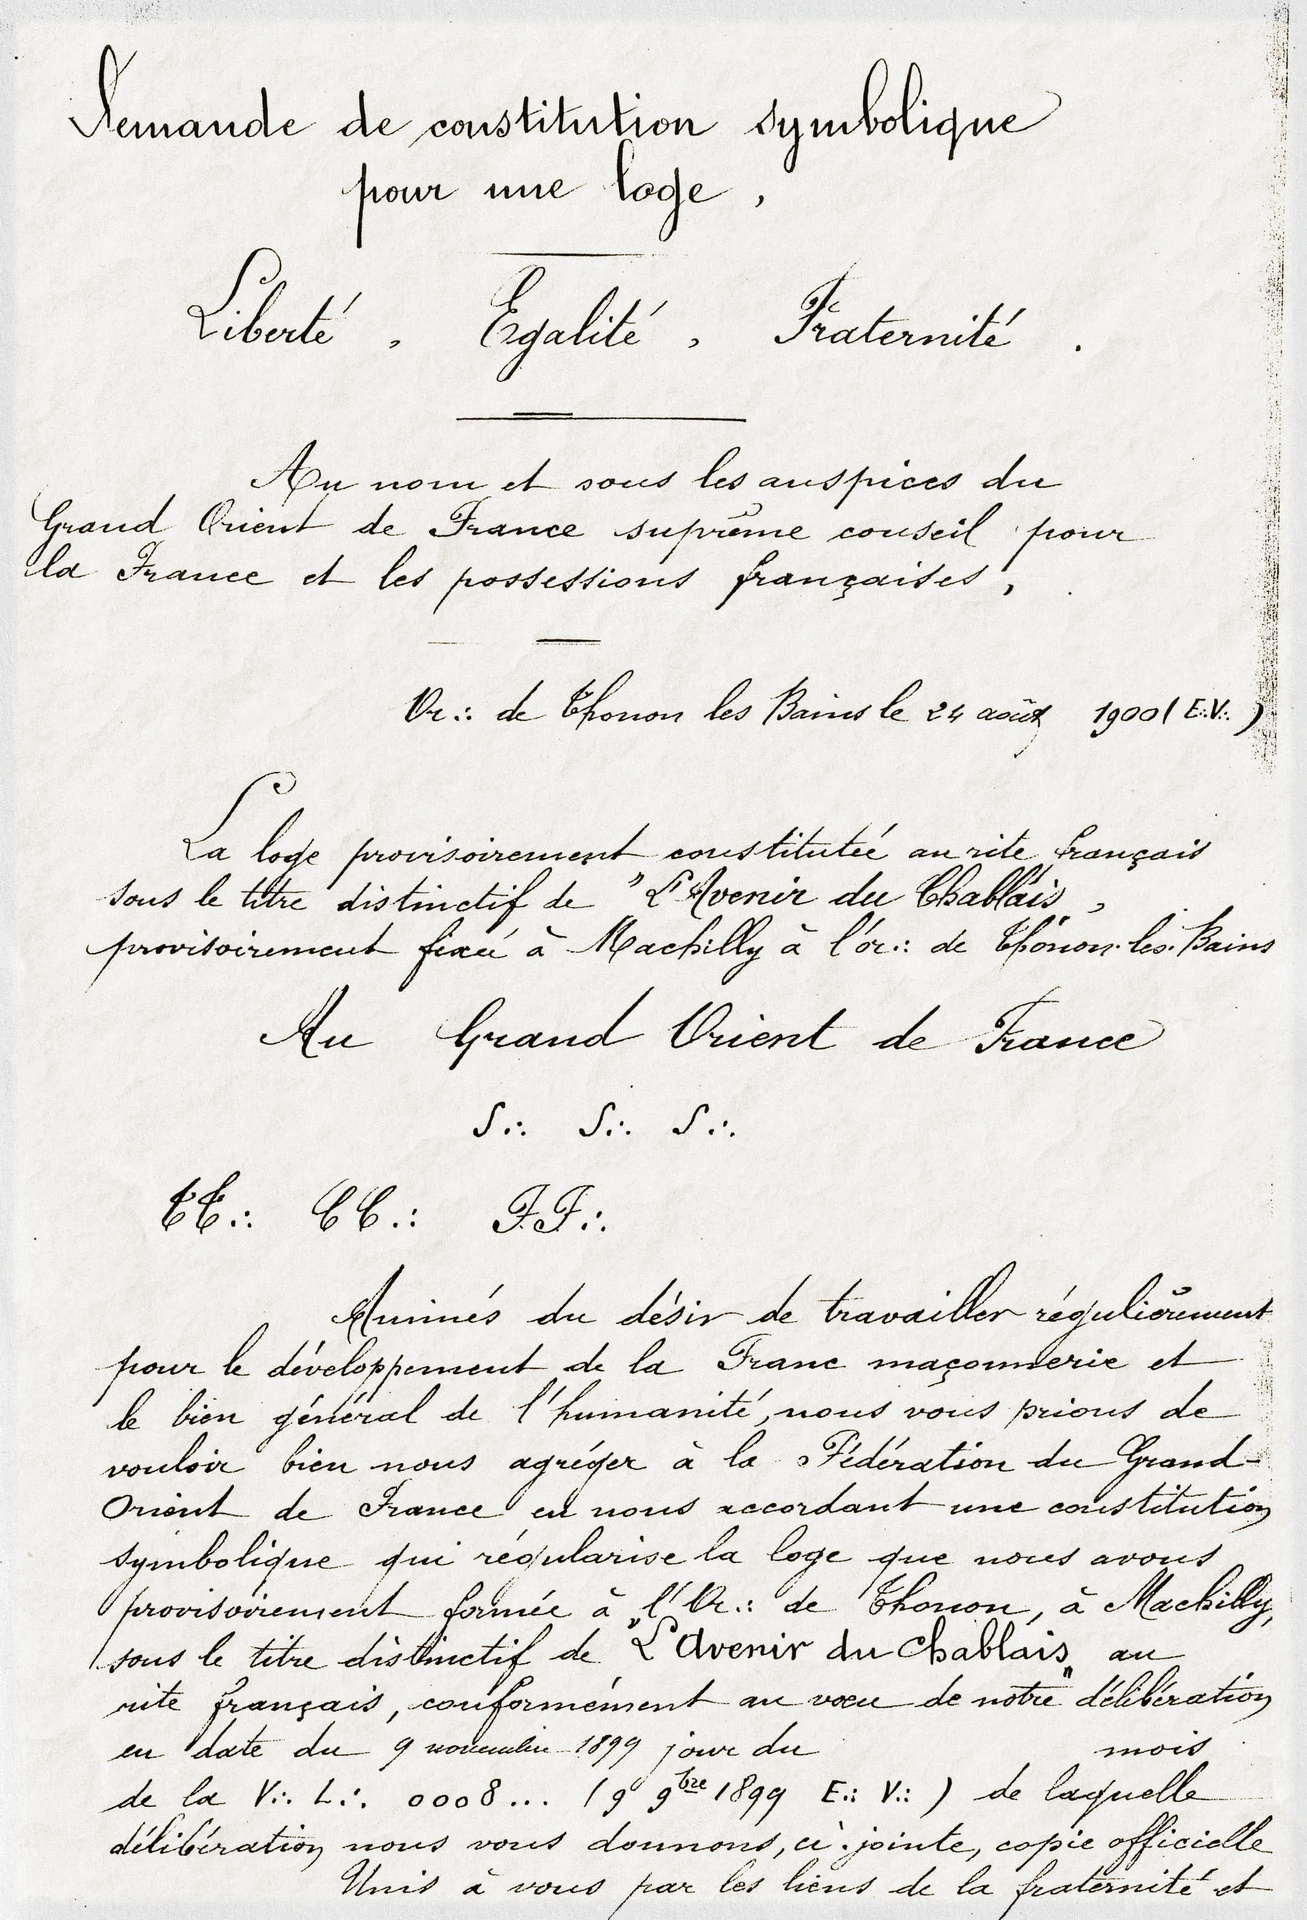 Demande de constitution symbolique
pour une loge,
Liberté, Egalité, Fraternité.
Au nom et sous les auspices du
Grand Orient de France suprême conseil pour
la France et les possessions françaises,
Or∴ de Thonon les Bains le 24 août 1900 (E∴V∴)
La loge provisoirement constitutée au rite français
sous le titre distinctif de "L'Avenir du Chablais,
provisoirement fixée à Machilly à l'or∴ de Thonon-les-Bains
Au Grand Orient de France
S∴ S∴ S∴
TT∴ CC∴ FF∴
Animés du désir de travailler régulièrement
pour le développement de la Franc maçonnerie et
le bien général de l'humanité, nous vous prions de
vouloir bien nous agréger à la Fédération du Grand-
Orient de France en nous accordant une constitution
symbolique qui régularise la loge que nous avons
provisoirement formée à l'Or∴ de Thonon, à Machilly,
sous le titre distinctif de "L'Avenir du Chablais" au
rite français, conformément au vœu de notre délibération
en date du 9 novembre 1899 jour du mois
de la V∴ L∴ 0008... (9 9bre 1899 E∴ V∴) de laquelle
délibération nous vous donnons, ci-jointe, copie officielle
Unis à vous par les liens de la fraternité et